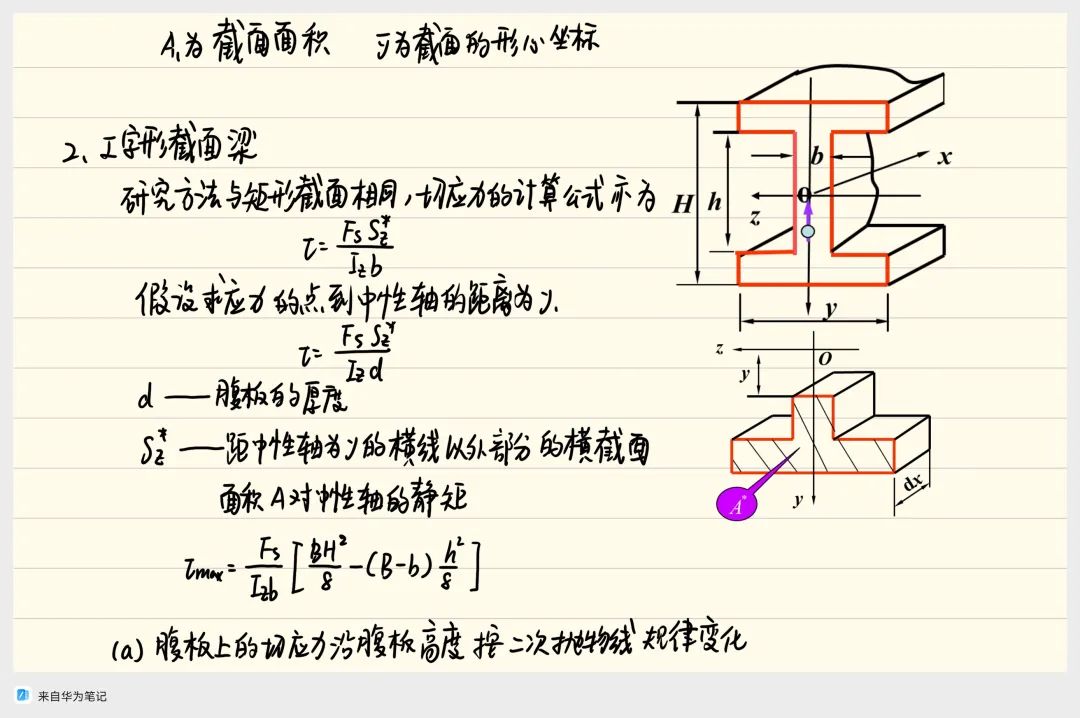 A₁为截面面积 ȳ为截面的形心坐标
2、工字形截面梁
研究方法与矩形截面相同，切应力的计算公式亦为
τ= FsSz*/Izb
假设求应力的点到中性轴的距离为y.
τ= FsSz*/Izd
d ——腹板的厚度
Sz* ——距中性轴为y的横线以外部分的横截面
面积A对中性轴的静矩
τmax= Fs/Izb [BH²/8 -(B-b) h²/8]
(a) 腹板上的切应力沿腹板高度按二次抛物线规律变化
b
x
H
h
O
z
y
z
O
y
A*
y
dx
来自华为笔记